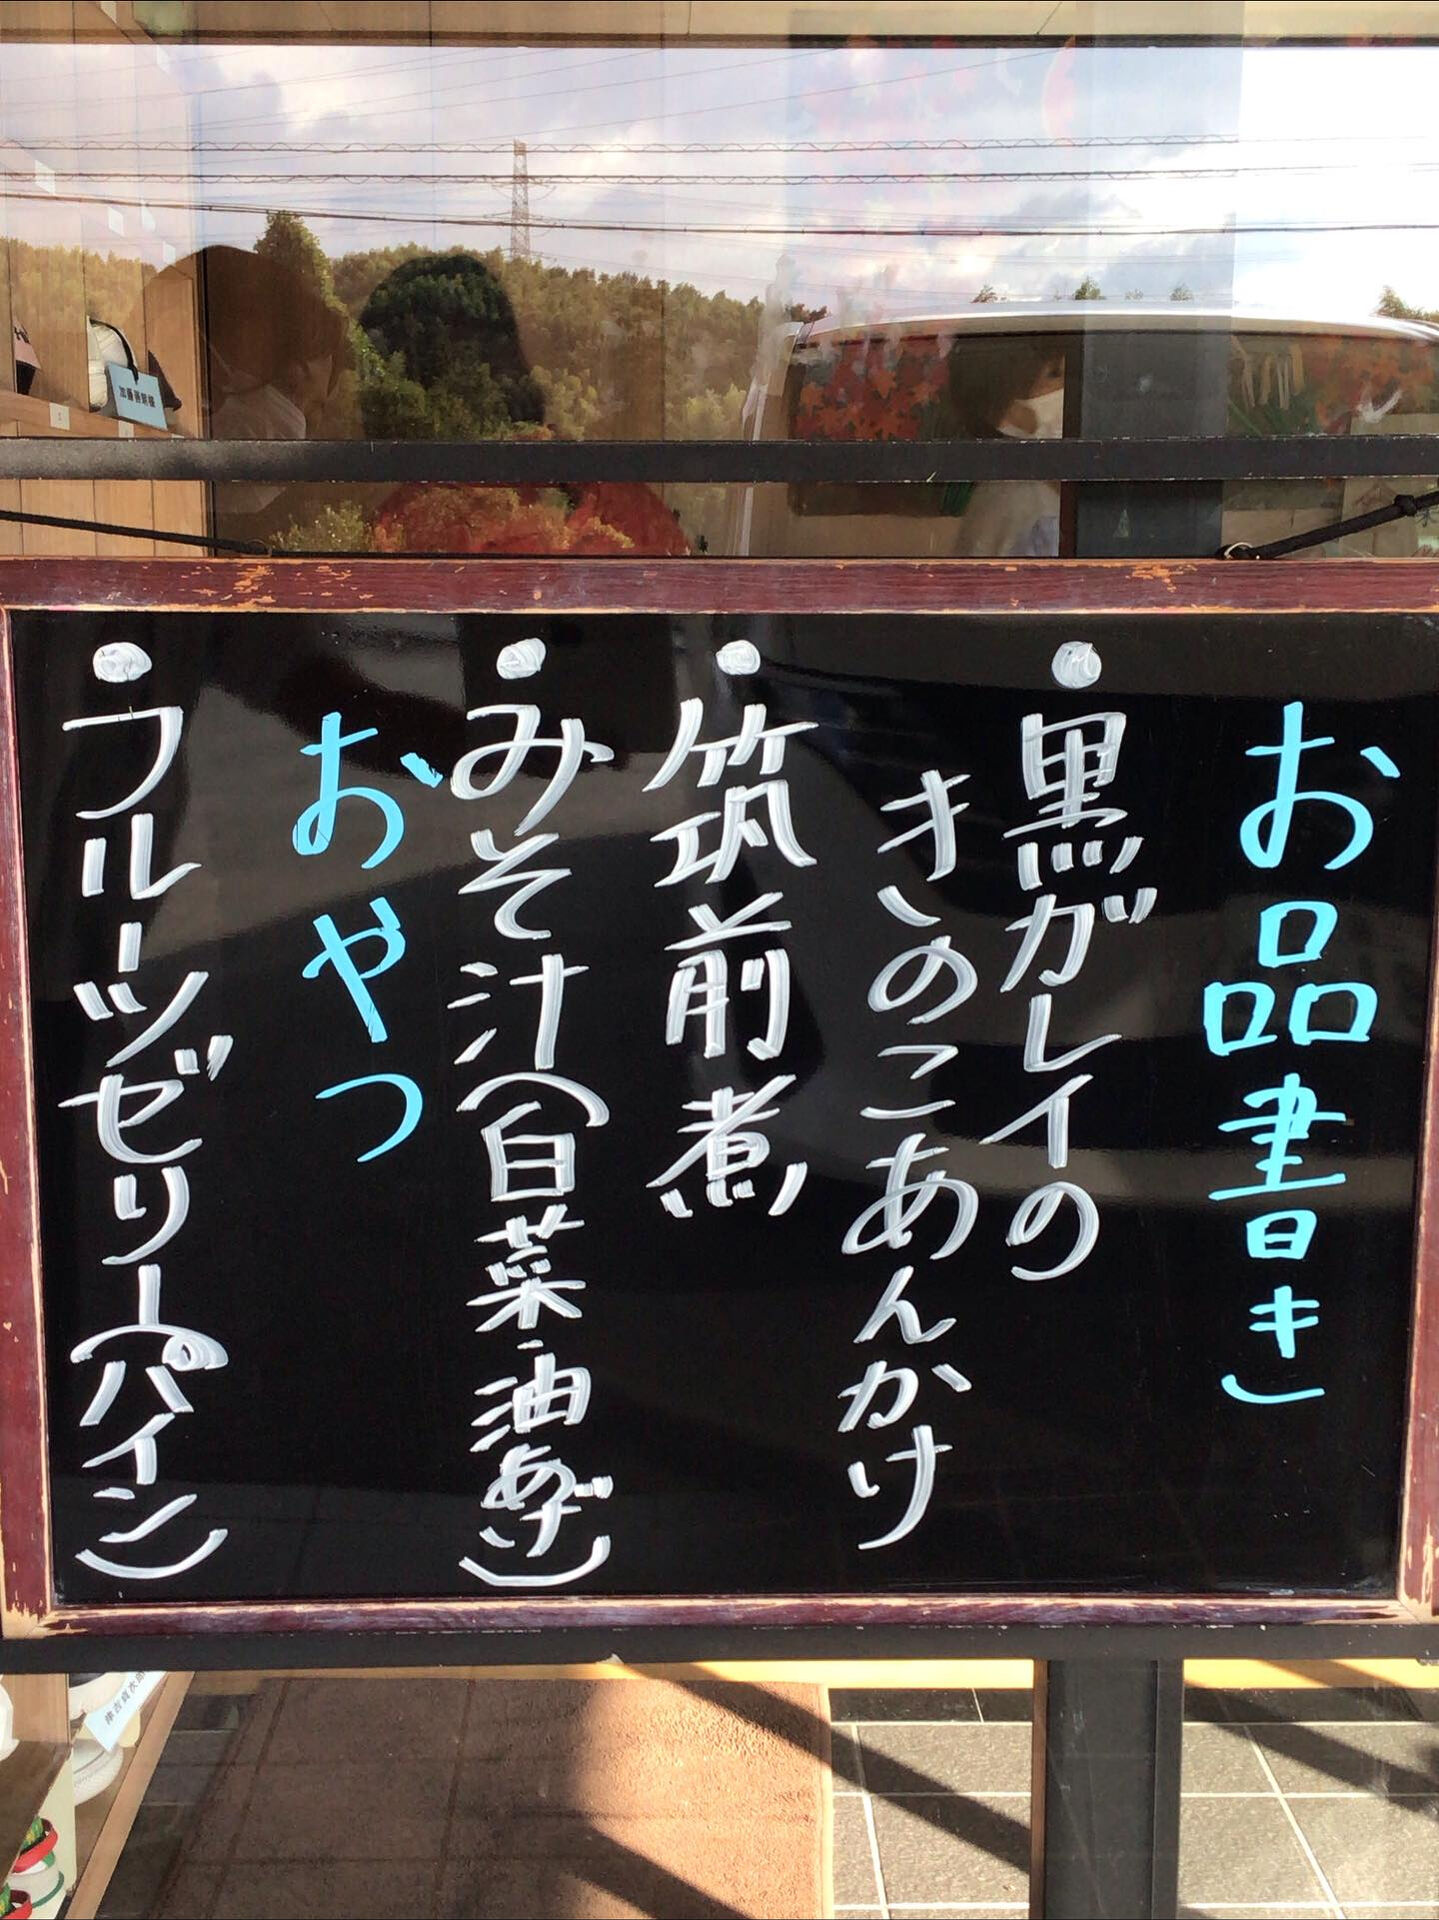 お品書き
・黒ガレイの
きのこあんかけ
・筑前煮
・みそ汁(白菜・油あげ)
おやつ
・フルーツゼリー(パイン)